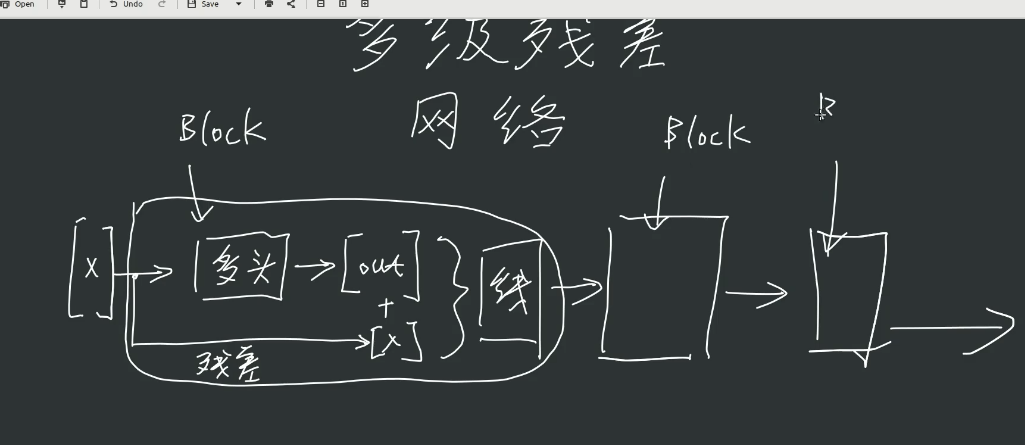 Open
Undo
Save
多级残差
网络
Block
Block
B
[X]
多头
[out]
+
[X]
线
残差